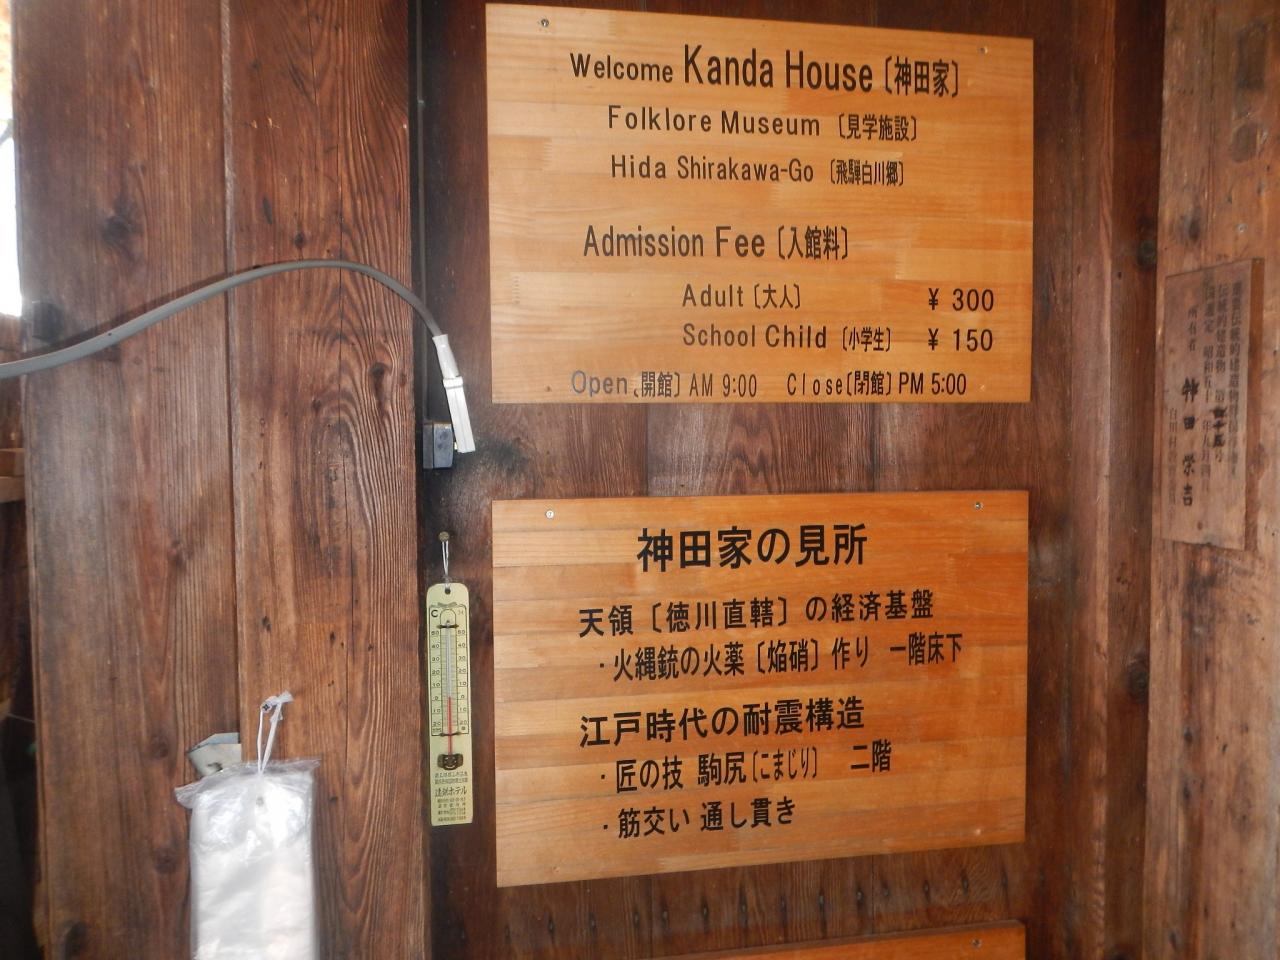 Welcome Kanda House〔神田家〕
Folklore Museum 〔見学施設〕
Hida Shirakawa-Go 〔飛騨白川郷〕
Admission Fee〔入館料〕
Adult〔大人〕 ¥ 300
School Child〔小学生〕 ¥ 150
Open〔開館〕AM 9:00 Close〔閉館〕PM 5:00
神田家の見所
天領〔徳川直轄〕の経済基盤
・火縄銃の火薬〔焔硝〕作り 一階床下
江戸時代の耐震構造
・匠の技 駒尻〔こまじり〕 二階
・筋交い 通し貫き
所有者 神田 栄吉
C
ホテル